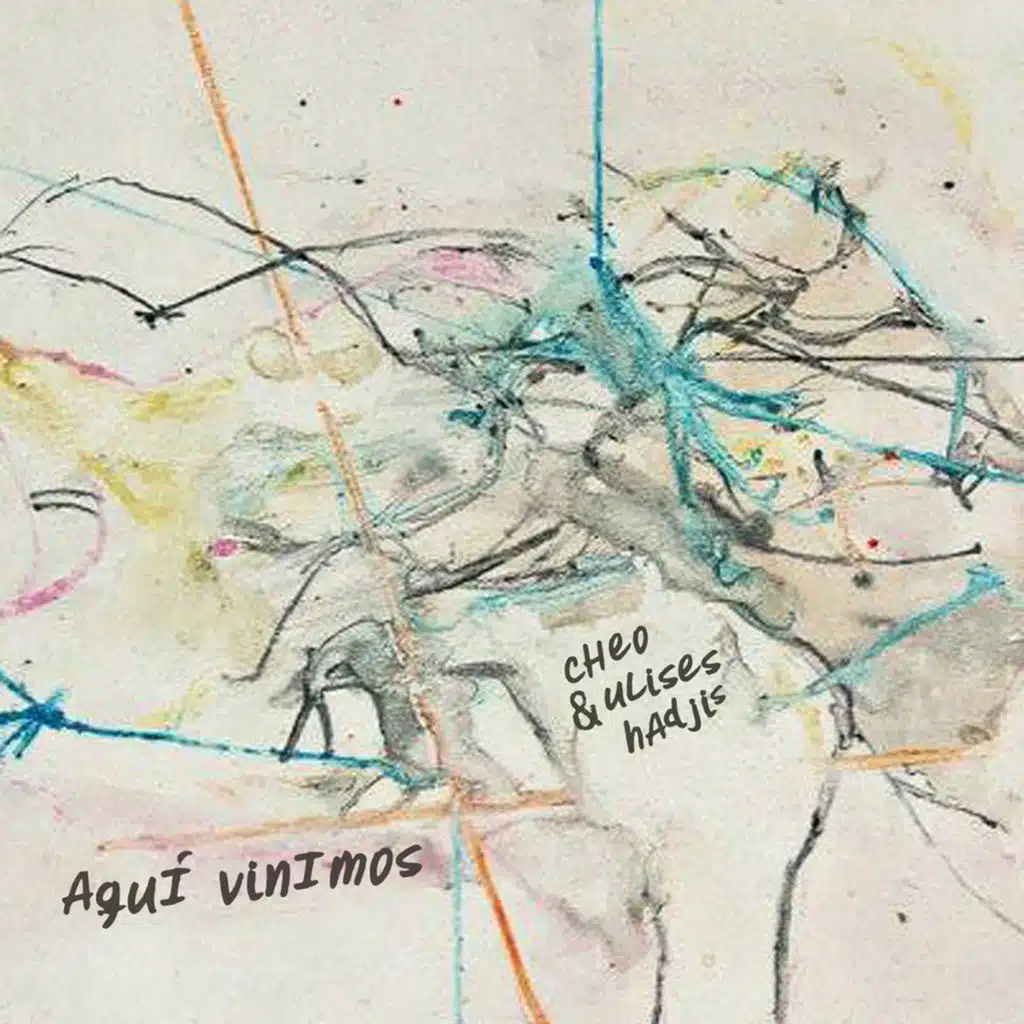 cHeo
& uLises
hAdjis
AquÍ vinImos